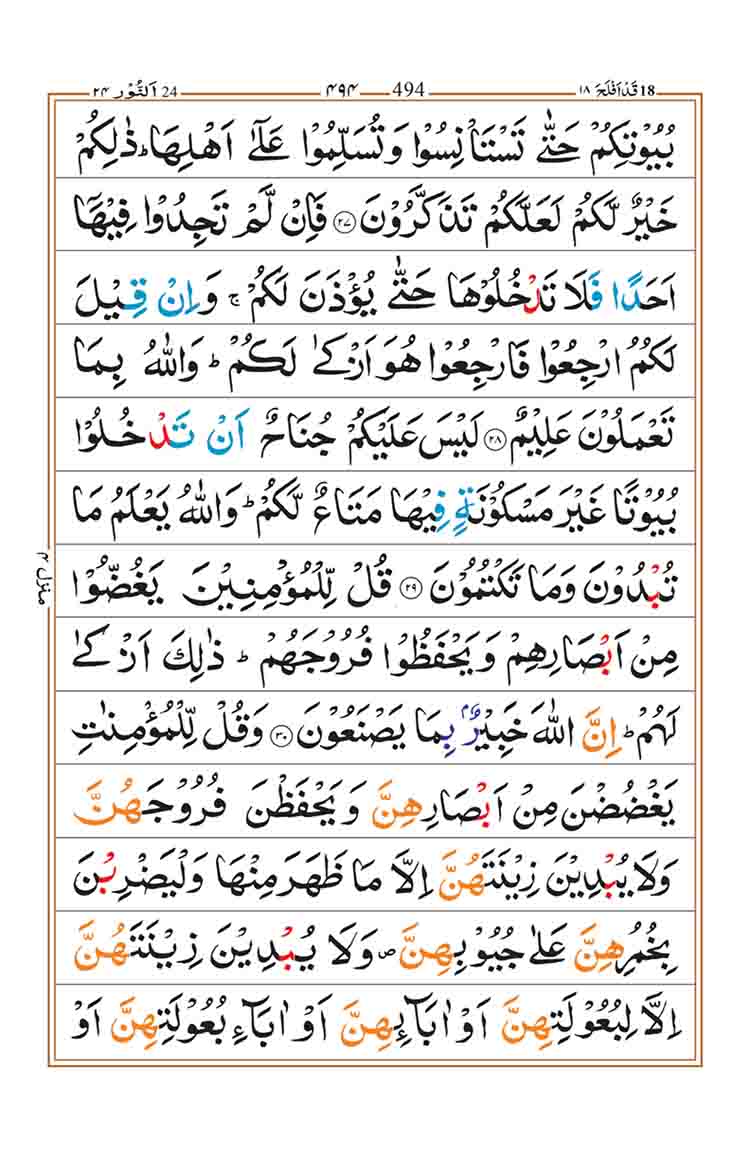 18 قَدْ اَفْلَحَ ١٨ 494 ۴۹۴ 24 اَلنُّوْر ٢٤
بُيُوْتِكُمْ حَتّٰى تَسْتَاْنِسُوْا وَتُسَلِّمُوْا عَلٰٓى اَهْلِهَا ؕ ذٰلِكُمْ
خَيْرٌ لَّكُمْ لَعَلَّكُمْ تَذَكَّرُوْنَ ۝۲۷ فَاِنْ لَّمْ تَجِدُوْا فِيْهَاۤ
اَحَدًا فَلَا تَدْخُلُوْهَا حَتّٰى يُؤْذَنَ لَكُمْ ۚ وَاِنْ قِيْلَ
لَكُمُ ارْجِعُوْا فَارْجِعُوْا هُوَ اَزْكٰى لَكُمْ ؕ وَاللّٰهُ بِمَا
تَعْمَلُوْنَ عَلِيْمٌ ۝۲۸ لَيْسَ عَلَيْكُمْ جُنَاحٌ اَنْ تَدْخُلُوْا
بُيُوْتًا غَيْرَ مَسْكُوْنَةٍ فِيْهَا مَتَاعٌ لَّكُمْ ؕ وَاللّٰهُ يَعْلَمُ مَا
تُبْدُوْنَ وَمَا تَكْتُمُوْنَ ۝۲۹ قُلْ لِّلْمُؤْمِنِيْنَ يَغُضُّوْا
مِنْ اَبْصَارِهِمْ وَيَحْفَظُوْا فُرُوْجَهُمْ ؕ ذٰلِكَ اَزْكٰى
لَهُمْ ؕ اِنَّ اللّٰهَ خَبِيْرٌۢ بِمَا يَصْنَعُوْنَ ۝۳۰ وَقُلْ لِّلْمُؤْمِنٰتِ
يَغْضُضْنَ مِنْ اَبْصَارِهِنَّ وَيَحْفَظْنَ فُرُوْجَهُنَّ
وَلَا يُبْدِيْنَ زِيْنَتَهُنَّ اِلَّا مَا ظَهَرَ مِنْهَا وَلْيَضْرِبْنَ
بِخُمُرِهِنَّ عَلٰى جُيُوْبِهِنَّ ۪ وَلَا يُبْدِيْنَ زِيْنَتَهُنَّ
اِلَّا لِبُعُوْلَتِهِنَّ اَوْ اٰبَآئِهِنَّ اَوْ اٰبَآءِ بُعُوْلَتِهِنَّ اَوْ
منزل ۴